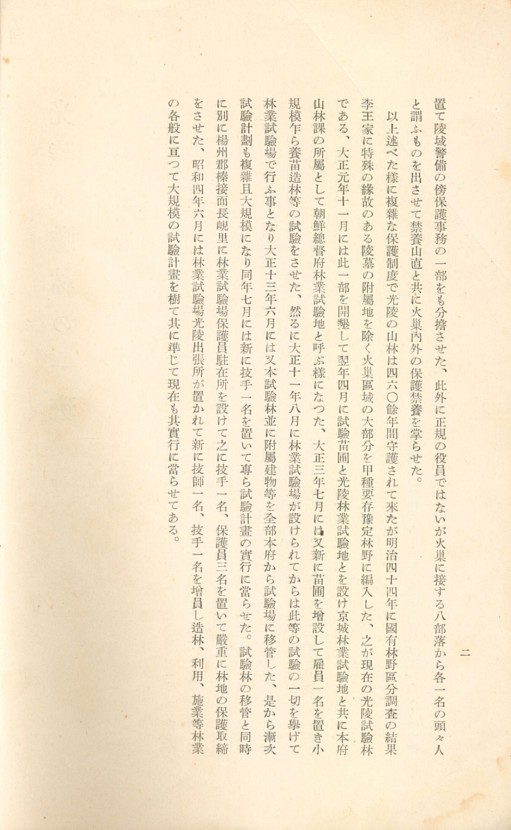 二
置て陵域警備の傍保護事務の一部をも分擔させた、此外に正規の役員ではないが火巢に接する八部落から各一名の頭々人
と謂ふものを出させて禁養山直と共に火巢內外の保護禁養を掌らせた。
以上述べた樣に複雜な保護制度で光陵の山林は四六〇餘年間守護されて來たが明治四十四年に國有林野區分調査の結果
李王家に特殊の緣故のある陵墓の附屬地を除く火巢區域の大部分を甲種要存豫定林野に編入した、之が現在の光陵試驗林
である、大正元年十一月には此一部を開墾して翌年四月に試驗苗圃と光陵林業試驗地とを設け京城林業試驗地と共に本府
山林課の所屬として朝鮮總督府林業試驗地と呼ぶ樣になつた、大正三年七月には又新に苗圃を增設して雇員一名を置き小
規模乍ら養苗造林等の試驗をさせた、然るに大正十一年八月に林業試驗場が設けられてからは此等の試驗の一切を擧げて
林業試驗場で行ふ事となり大正十三年六月には又本試驗林並に附屬建物等を全部本府から試驗場に移管した、是から漸次
試驗計劃も複雜且大規模になり同年七月には新に技手一名を置いて專ら試驗計畫の實行に當らせた。試驗林の移管と同時
に別に楊州郡榛接面長峴里に林業試驗場保護員駐在所を設けて之に技手一名、保護員三名を置いて嚴重に林地の保護取締
をさせた、昭和四年六月には林業試驗場光陵出張所が置かれて新に技師一名、技手一名を增員し造林、利用、施業等林業
の各般に亙つて大規模の試驗計畫を樹て共に準じて現在も其實行に當らせてある。